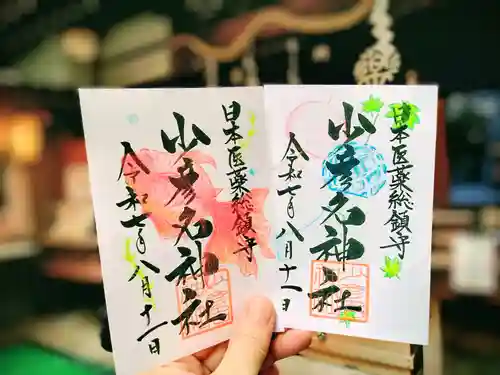 日本医薬総領守
少彦名神社
令和七年八月十一日
日本医薬総領守
少彦名神社
令和七年八月十一日